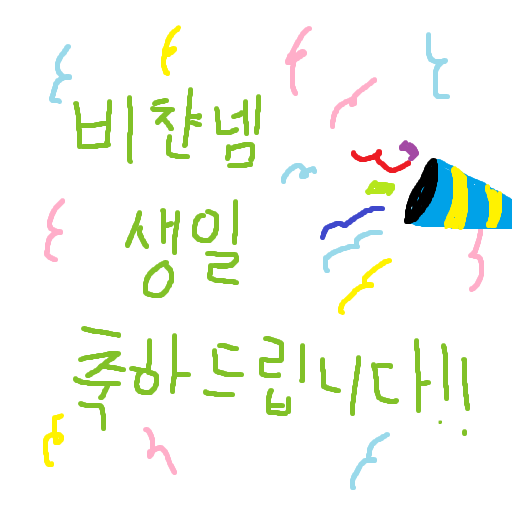 비챤넴
생일
축하드립니다!!